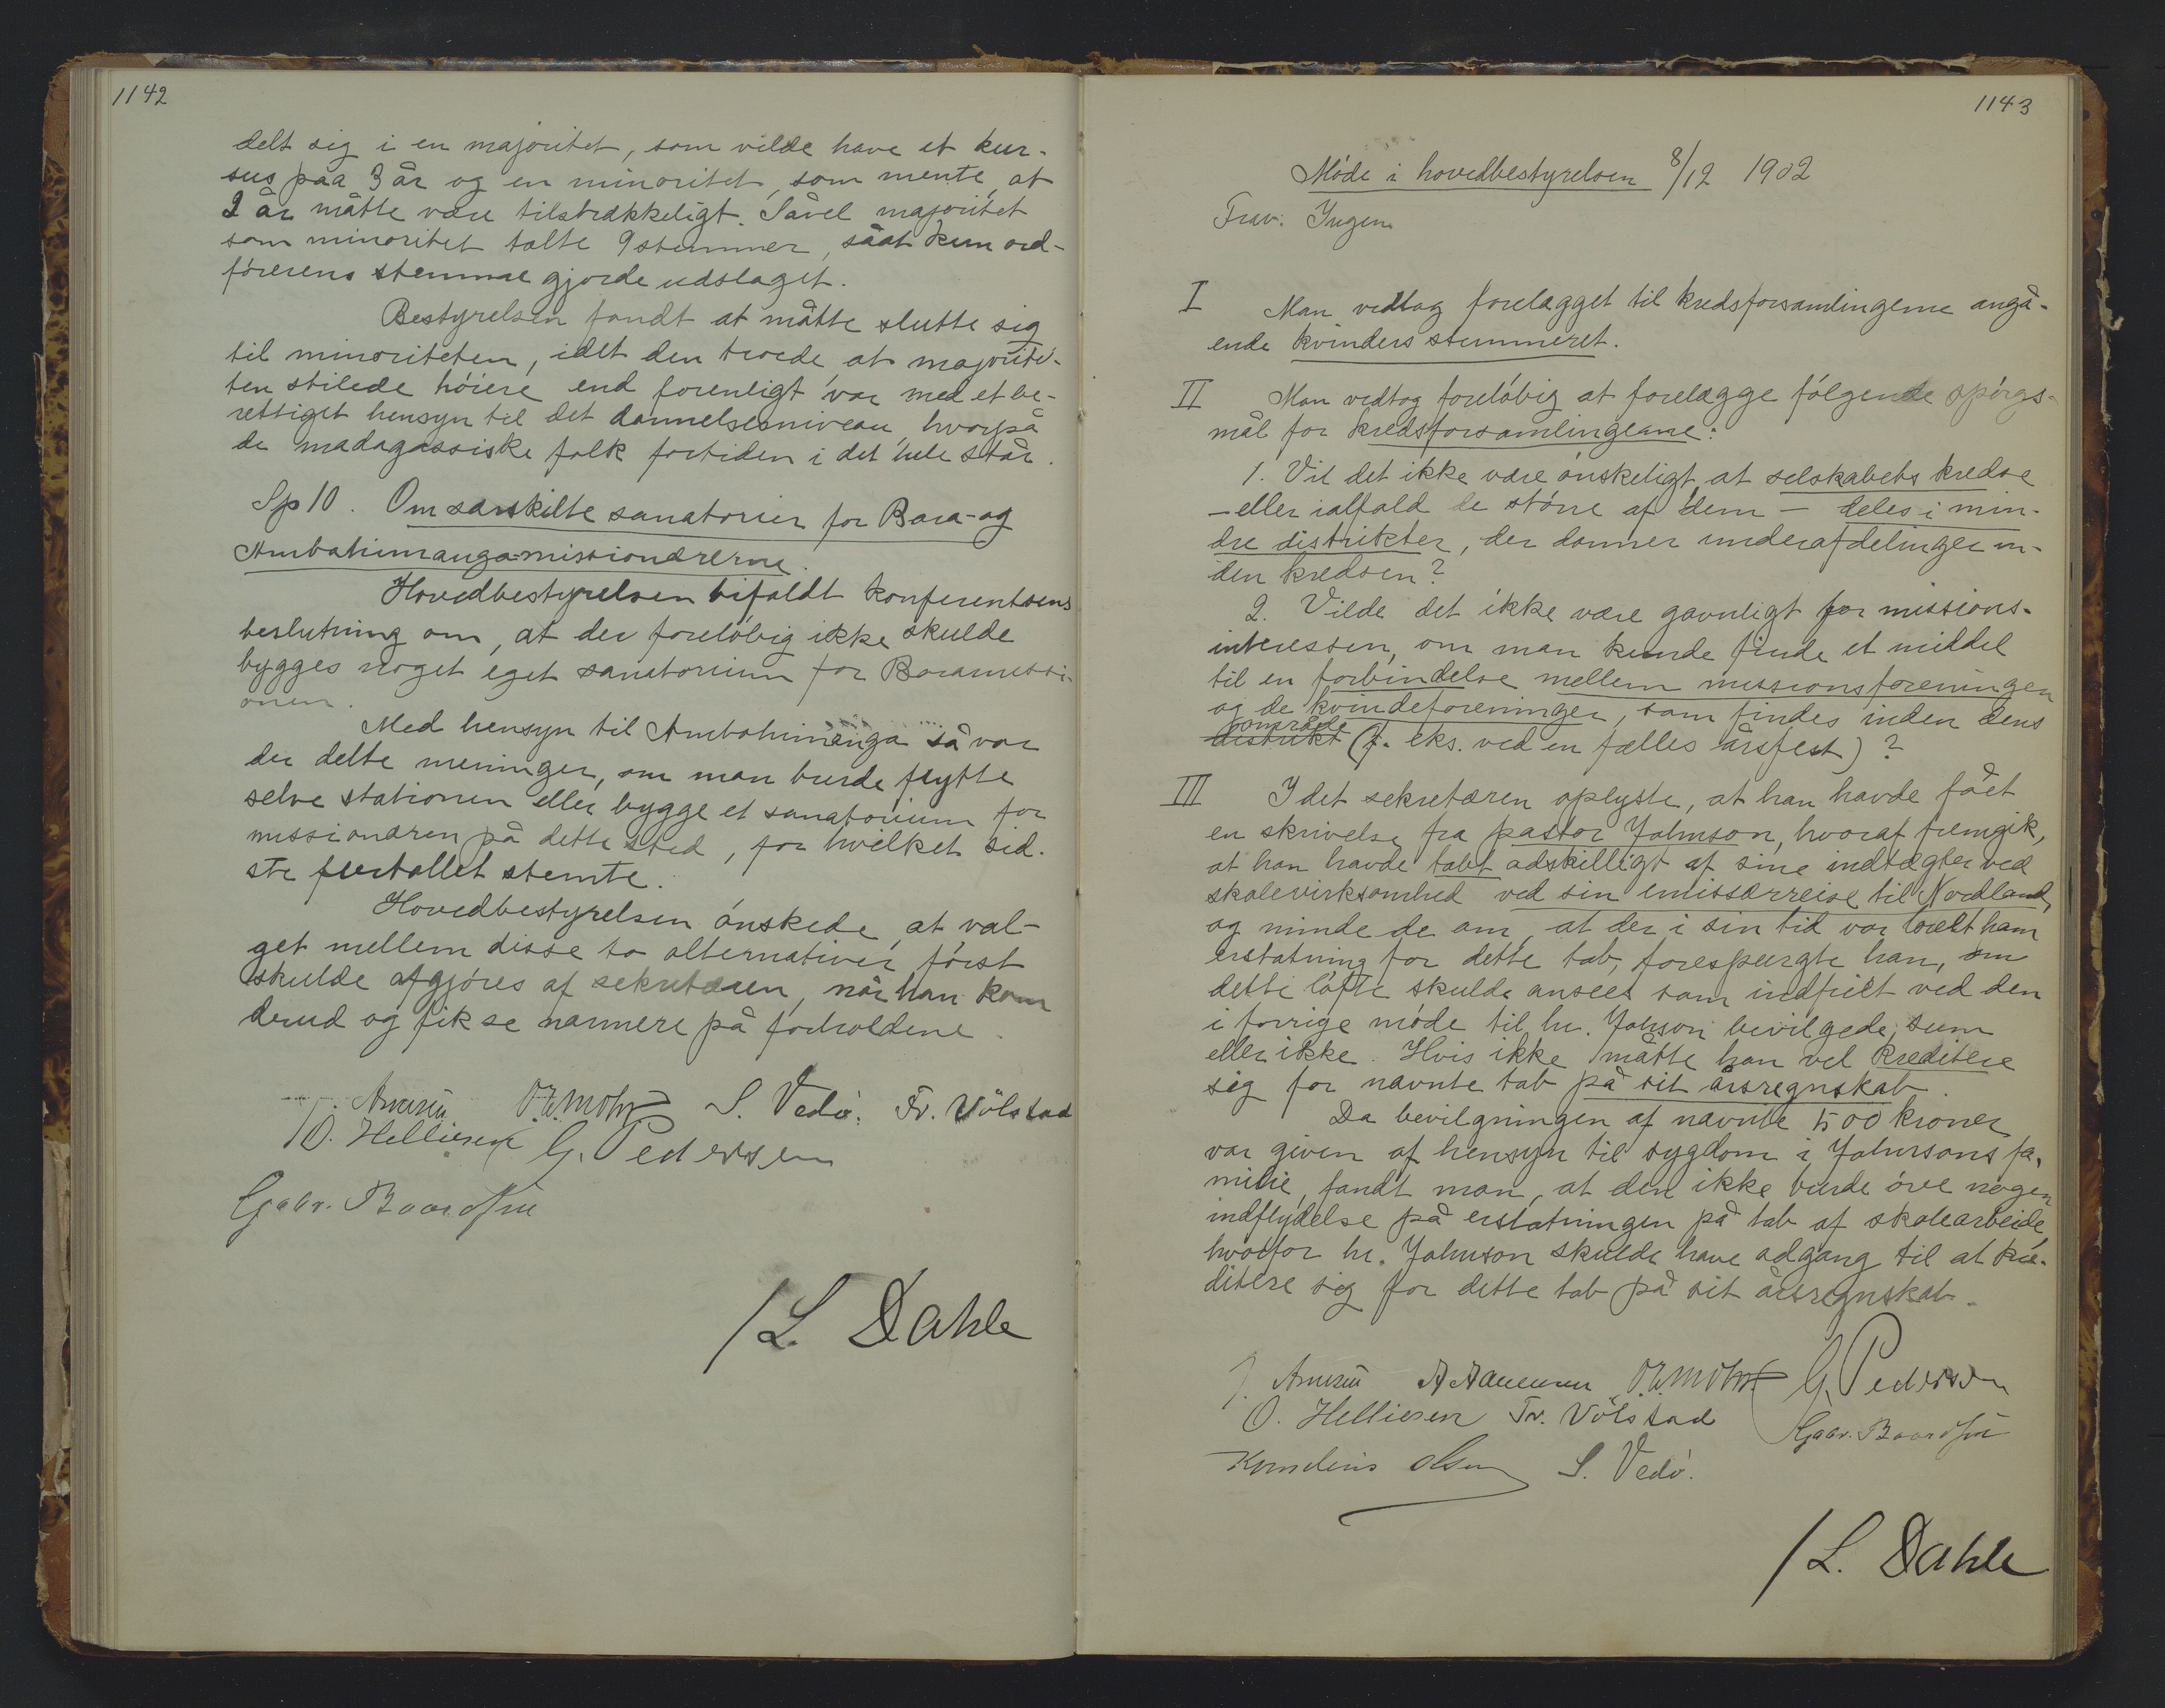 1142
delt sig i en majoritet, som vilde have et kur-
sus paa 3 år og en minoritet, som mente, at
2 år måtte være tilstrækkeligt. Såvel majoritet
som minoritet talte 9 stemmer, såat kun ord-
førerens stemme gjorde udslaget.
Bestyrelsen fandt at måtte slutte sig
til minoriteten, idet den troede, at majorite-
ten stilede höiere end forenligt var med et be-
rettiget hensyn til det dannelsesniveau, hvorpå
de madagassiske folk fortiden i det hele står.
Sp 10. Om særskilte sanatorier for Bara- og
Ambohimanga-missionærerne.
Hovedbestyrelsen bifaldt konferentsens
beslutning om, at der foreløbig ikke skulde
bygges noget eget sanatorium for Baramissi-
onen.
Med hensyn til Ambohimanga så var
der delte meninger, om man burde flytte
selve stationen eller bygge et sanatorium for
missionæren på dette sted, for hvilket sid-
ste flertallet stemte.
Hovedbestyrelsen ónskede, at val-
get mellem disse to alternativer fórst
skulde afgjóres af sekretæren, når han kom
derud og fik se nærmere på forholdene.
S. Vedö. Fr. Völstad
O. Helliesen G. Pedersen
Gabr. Baardsen
/L. Dahle
1143
Móde i hovedbestyrelsen 8/12 1902
Frav: Ingen
I Man vedtog forelægget til kredsforsamlingerne angå-
ende kvinders stemmeret.
II Man vedtog forelóbig at forelægge fólgende spórgs-
mål for kredsforsamlingerne:
1. Vil det ikke være ónskeligt, at selskabets kredse
- eller ialfald de större af dem - deles i min-
dre distrikter, der danner underafdelinger in-
den kredsen?
2. Vilde det ikke være gavnligt for missions-
interessen, om man kunde finde et middel
til en forbindelse mellem missionsforeningen
og de kvindeforeninger, som findes inden dens
område
distrikt (f. eks. ved en fælles årsfest)?
III Idet sekretæren oplyste, at han havde fået
en skrivelse fra pastor Johnson, hvoraf fremgik,
at han havde tabt adskilligt af sine indtægter ved
skolevirksomhed ved sin emissærreise til Nordland,
og minde de om, at der i sin tid var lovet ham
erstatning for dette tab, forespurgte han, om
dette lófte skulde ansees som indfriet ved den
i forrige móde til hr. Johnson bevilgede sum
eller ikke. Hvis ikke måtte han vel kreditere
sig for nævnte tab på sit årsregnskab.
Da bevilgningen af nævnte 500 kroner
var given af hensyn til sygdom i Johnsons fa-
milie, fandt man, at den ikke burde óve nogen
indflydelse på erstatningen på tab af skolearbeide,
hvorfor hr. Johnson skulde have adgang til at kre-
ditere sig for dette tab på sit årsregnskab.
G. Pedersen
O. Helliesen Fr. Völstad Gabr. Baardsen
Kornelius Olsen S. Vedö.
/L. Dahle